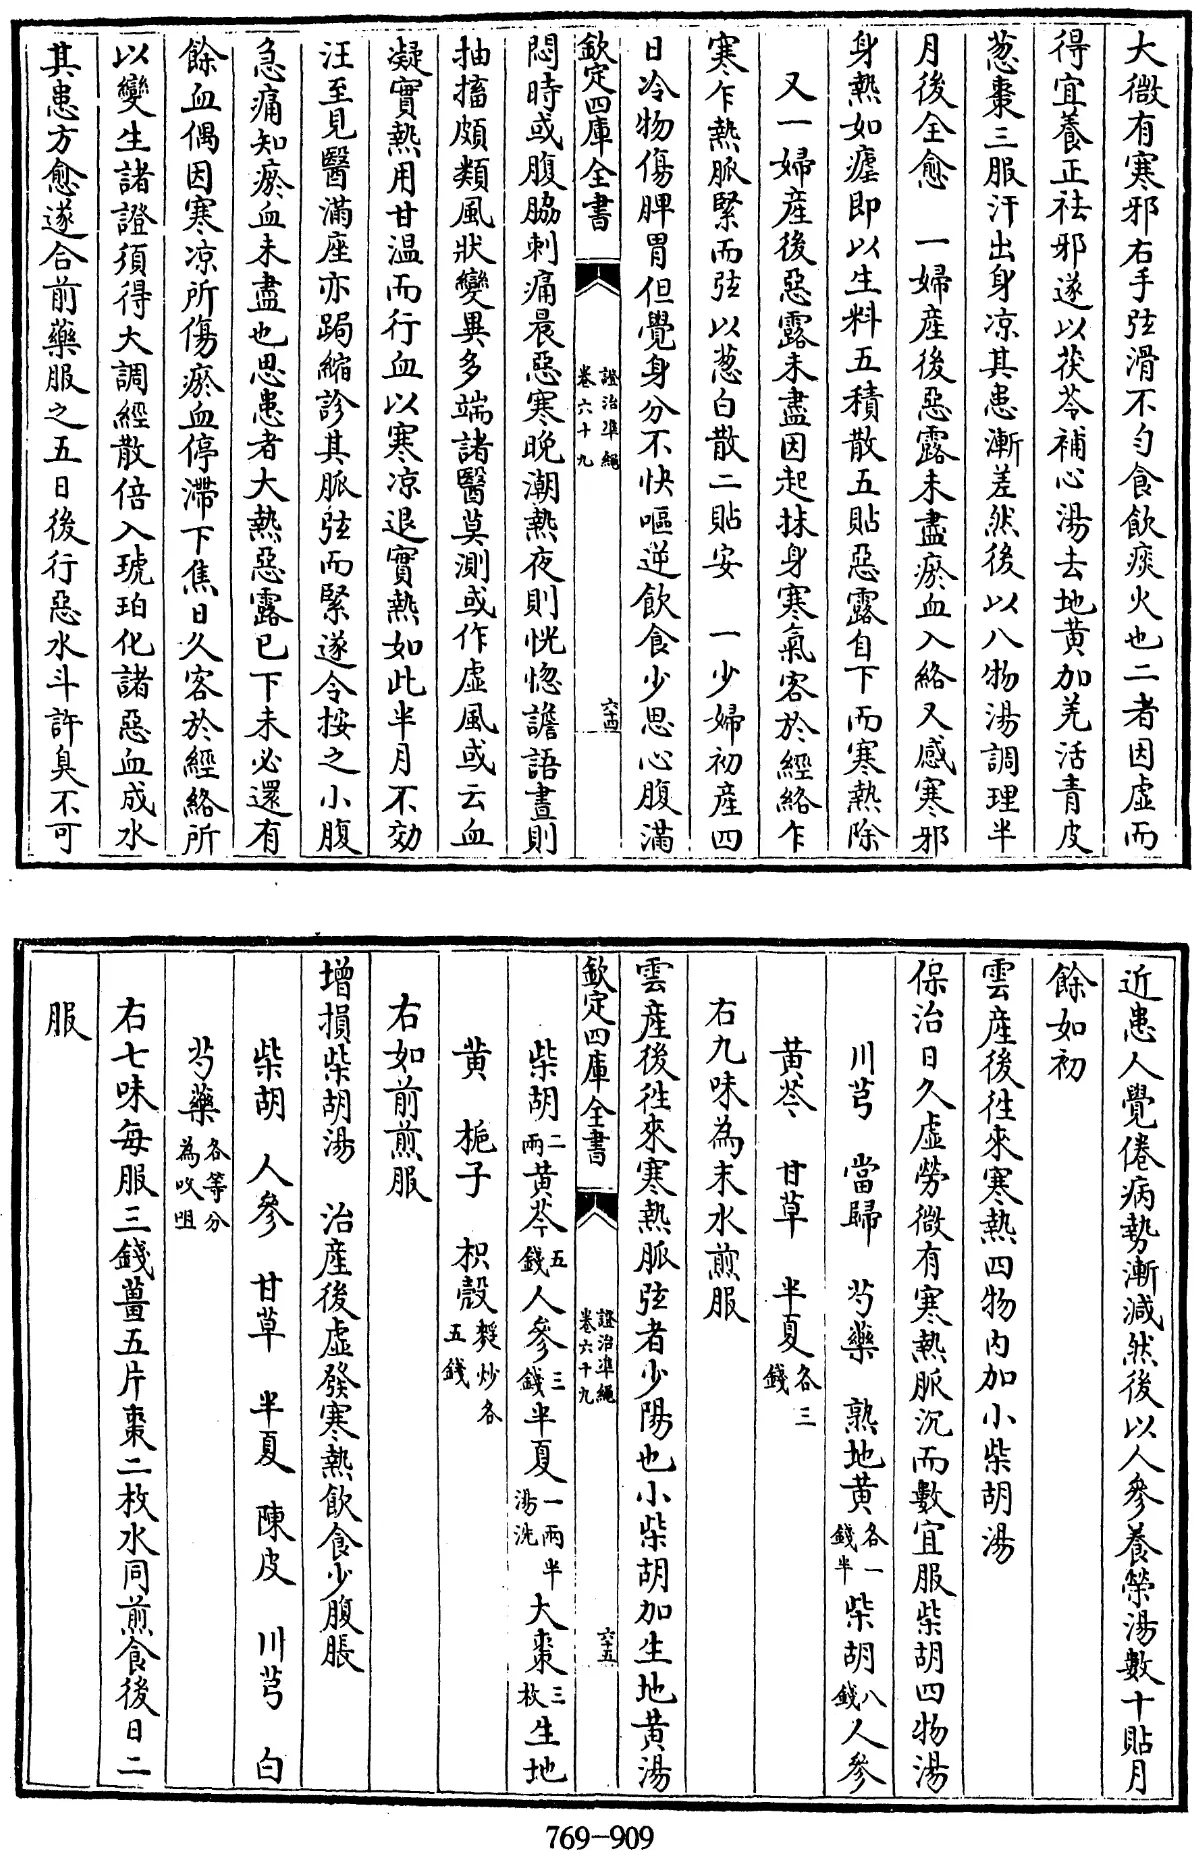 大微有寒邪右手弦滑不勻食飲痰火也二者因虚而
得宜養正祛邪遂以茯苓補心湯去地黄加羌活青皮
葱棗三服汗出身凉其患漸差然後以八物湯調理半
月後全愈　一婦產後惡露未盡瘀血入絡又感寒邪
身熱如瘧即以生料五積散五貼惡露自下而寒熱除
又一婦產後惡露未盡因起抹身寒氣客於經絡乍
寒乍熱脈緊而弦以葱白散二貼安　一少婦初產四
日冷物傷脾胃但覺身分不快嘔逆飲食少思心腹滿
欽定四庫全書
證治準繩
卷六十九
六十四
悶時或腹脇刺痛晨惡寒晚潮熱夜則恍惚譫語晝則
抽搐頗類風狀變異多端諸醫莫測或作虚風或云血
凝實熱用甘温而行血以寒凉退實熱如此半月不効
汪至見醫滿座亦跼縮診其脈弦而緊遂令按之小腹
急痛知瘀血未盡也思患者大熱惡露已下未必還有
餘血偶因寒凉所傷瘀血停滯下焦日久客於經絡所
以變生諸證須得大調經散倍入琥珀化諸惡血成水
其患方愈遂合前藥服之五日後行惡水斗許臭不可
近患人覺倦病勢漸減然後以人參養榮湯數十貼月
餘如初
雲產後徃來寒熱四物内加小柴胡湯
保治日久虚勞微有寒熱脈沉而數宜服柴胡四物湯
川芎　當歸　芍藥　熟地黄各一錢半柴胡八錢人參
黄芩　甘草　半夏各三錢
右九味為末水煎服
雲產後徃來寒熱脈弦者少陽也小柴胡加生地黄湯
欽定四庫全書
證治準繩
卷六十九
六十五
柴胡二兩黄芩五錢人參三錢半夏一兩半湯洗大棗三枚生地
黄　梔子　枳殼麩炒各五錢
右如前煎服
增損柴胡湯　治產後虚發寒熱飲食少腹脹
柴胡　人參　甘草　半夏　陳皮　川芎　白
芍藥各等分為㕮咀
右七味每服三錢薑五片棗二枚水同煎食後日二
服
769-909